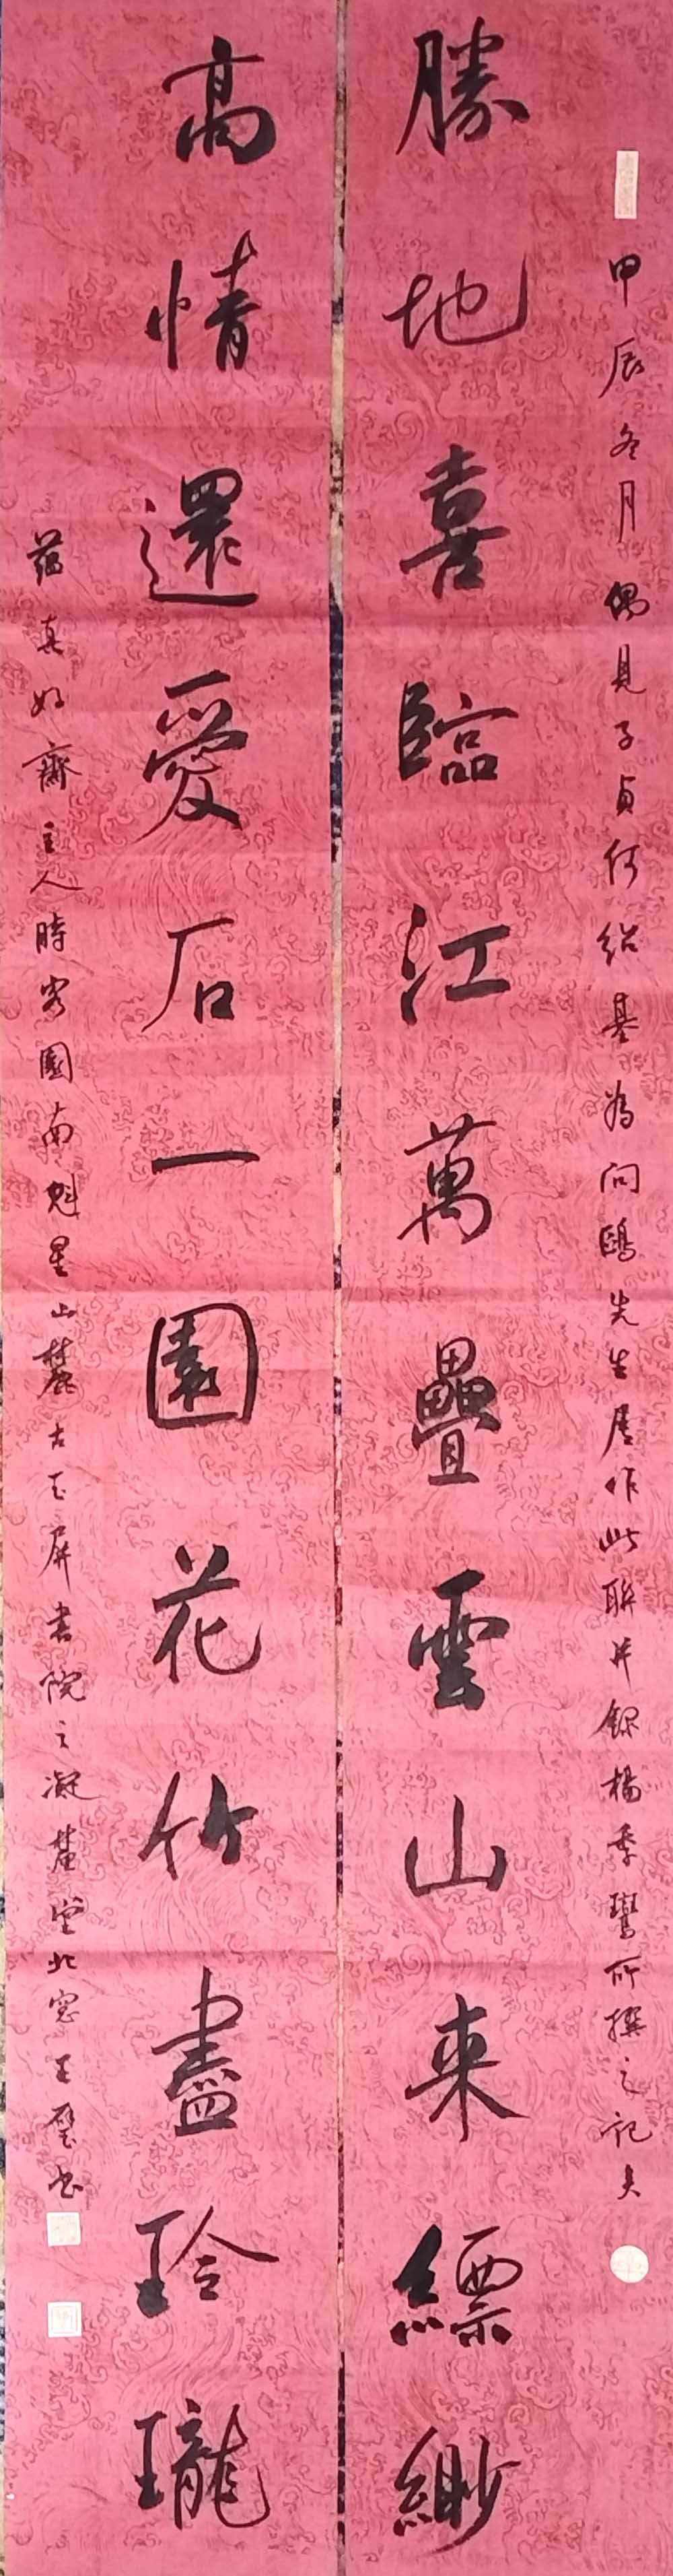 甲辰冬月偶見子貞何紹基為問鷗先生屬作此聯并錄楊季鸞所撰之記夫
勝地喜臨江萬疊雲山來縹緲
高情還愛石一園花竹盡玲瓏
蘊真如齋主人時客園南魁星山麓古玉屏書院之凝麓堂北窓王璧书